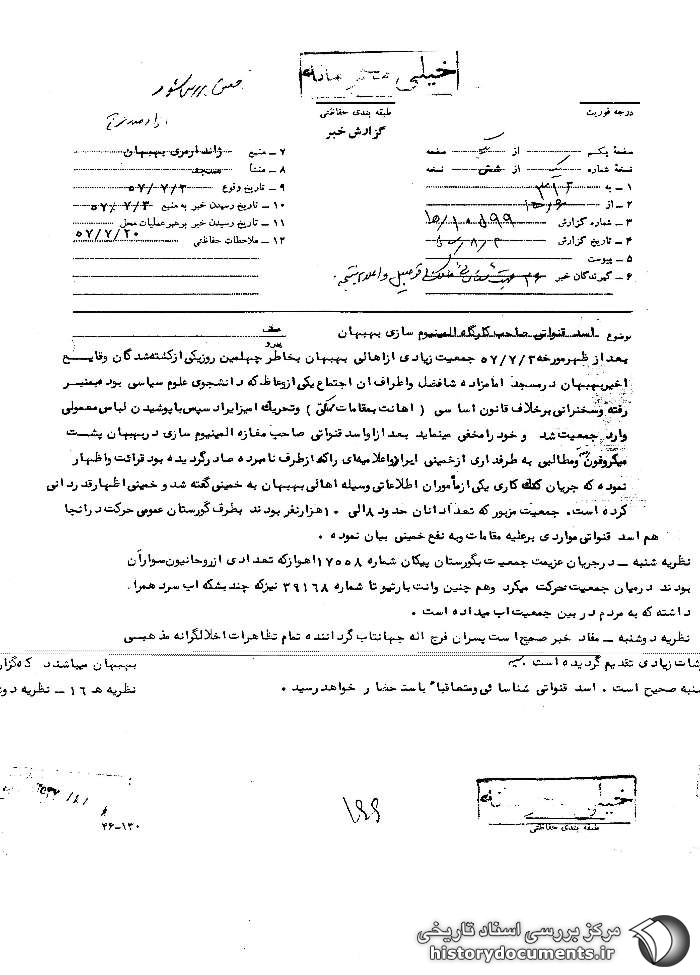 خیلی محرمانه
طبقه بندی حفاظتی
گزارش خبر
درجه فوریت
صفحه یکم از صفحه
نسخه شماره از شش نسخه
۱ – به ۳۱۲
۲ – از
۳ – شماره گزارش
۴ – تاریخ گزارش
۵ – پیوست
۶ – گیرندگان خبر
۷ – منبع ژاندارمری بهبهان
۸ – منشأ
۹ – تاریخ وقوع ۵۷/۷/۳
۱۰ – تاریخ رسیدن خبر به منبع ۵۷/۷/۳
۱۱ – تاریخ رسیدن خبر برهبر عملیات محل
۵۷/۷/۲۰
۱۲ – ملاحظات حفاظتی
موضوع اسد قنواتی صاحب کارگاه المینیوم سازی بهبهان
عطف
پیرو
بعد از ظهر مورخه ۵۷/۷/۳ جمعیت زیادی ازاهالی بهبهان بخاطر چهلمین روزیکی ازکشته شدگان وقایع
اخیر بهبهان درمسجد امامزاده شافضل واطراف ان اجتماع یکی ازوعاظ که دانشجوی علوم سیاسی بود بمنبر
رفته وسخنرانی برخلاف قانون اساسی ( اهانت بمقامات مملکتی ) وتحریك امیزایراد سپس باپوشیدن لباس معمولی
وارد جمعیت شد و خود رامخفی مینماید بعد ازاو اسد قنواتی صاحب مغازه المینیوم سازی دربهبهان پشت
میکروفون رفته ومطالبی به طرفداری ازخمینی ایراد واعلامیه‌ای راکه ازطرف نامبرده صادرگردیده بود قرائت واظهار
نموده که جریان کتك کاری یکی ازمأموران اطلاعاتی وسیله اهالی بهبهان به خمینی گفته شد و خمینی اظهارقدردانی
کرده است. جمعیت مزبور که تعداد انان حدود ۸ الی ۱۰ هزارنفر بودند بطرف گورستان عمومی حرکت درانجا
هم اسد قنواتی مواردی برعلیه مقامات وبه نفع خمینی بیان نموده .
نظریه شنبه – درجریان عزیمت جمعیت بگورستان پیکان شماره ۱۷۵۵۸ اهوازکه تعدادی ازروحانیون سوارآن
بودند درمیان جمعیت حرکت میکرد وهم چنین وانت بارتیوتا شماره ۳۹۱۶۸ نیزکه چند بشکه اب سرد همراه
داشته که به مردم در بین جمعیت اب میداده است .
نظریه دوشنبه – مفاد خبر صحیح است پسران فرج اله جهانتاب گرداننده تمام تظاهرات اخلالگرانه مذهبی
بهبهان میباشند که گزارشات زیادی تقدیم گردیده است
نظریه ۱۶ هـ – نظریه دوشنبه صحیح است . اسد قنواتی شناسائی ومتعاقباً باستحضار خواهد رسید .
۱۹۹
خیلی محرمانه
طبقه بندی حفاظتی
۲۶-۱۳۰
مرکز بررسی اسناد تاریخی
historydocuments.ir